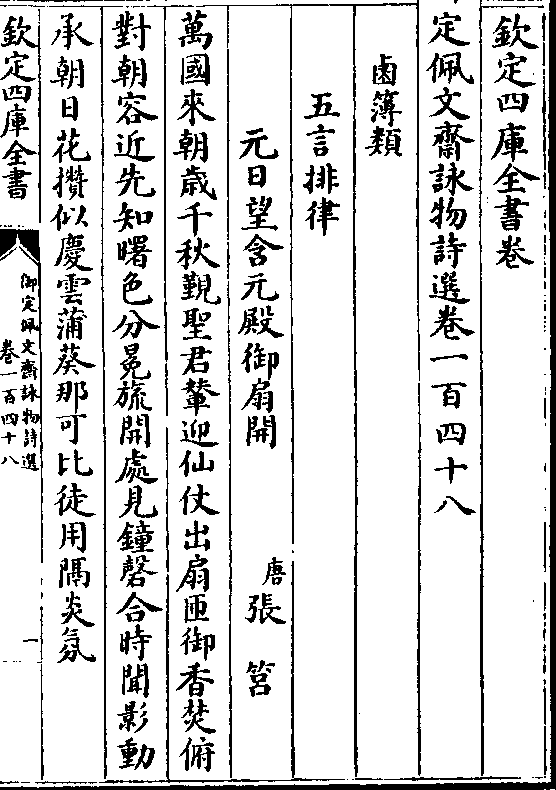 欽定四庫全書卷
定佩文齋詠物詩選卷一百四十八
鹵簿類
五言排律
元日望含元殿御扇開 唐張筥
萬國來朝歳千秋覲聖君輦迎仙仗出扇匝御香焚俯
對朝容近先知曙色分冕旒開處見鐘磬合時聞影動
承朝日花攢似慶雲蒲葵那可比徒用隔炎氛
欽定四庫全書
御定佩文齋詠物詩選
卷一百四十八
一